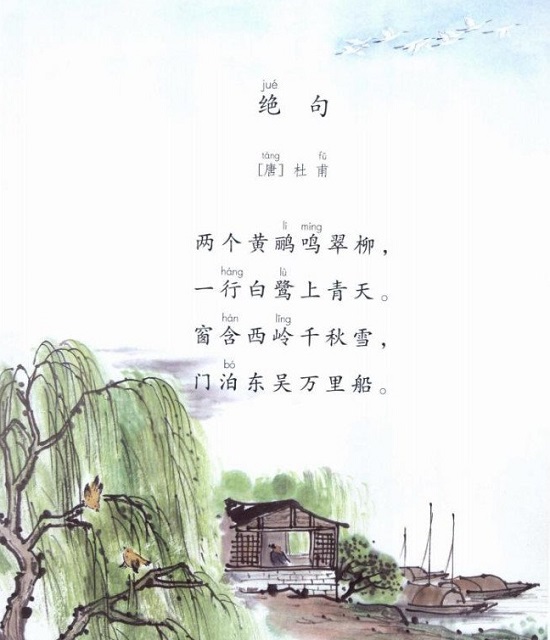 jué
绝句
táng fǔ
[唐] 杜甫
lí míng
两个黄鹂鸣翠柳，
háng lù
一行白鹭上青天。
hán lǐng
窗含西岭千秋雪，
bó
门泊东吴万里船。